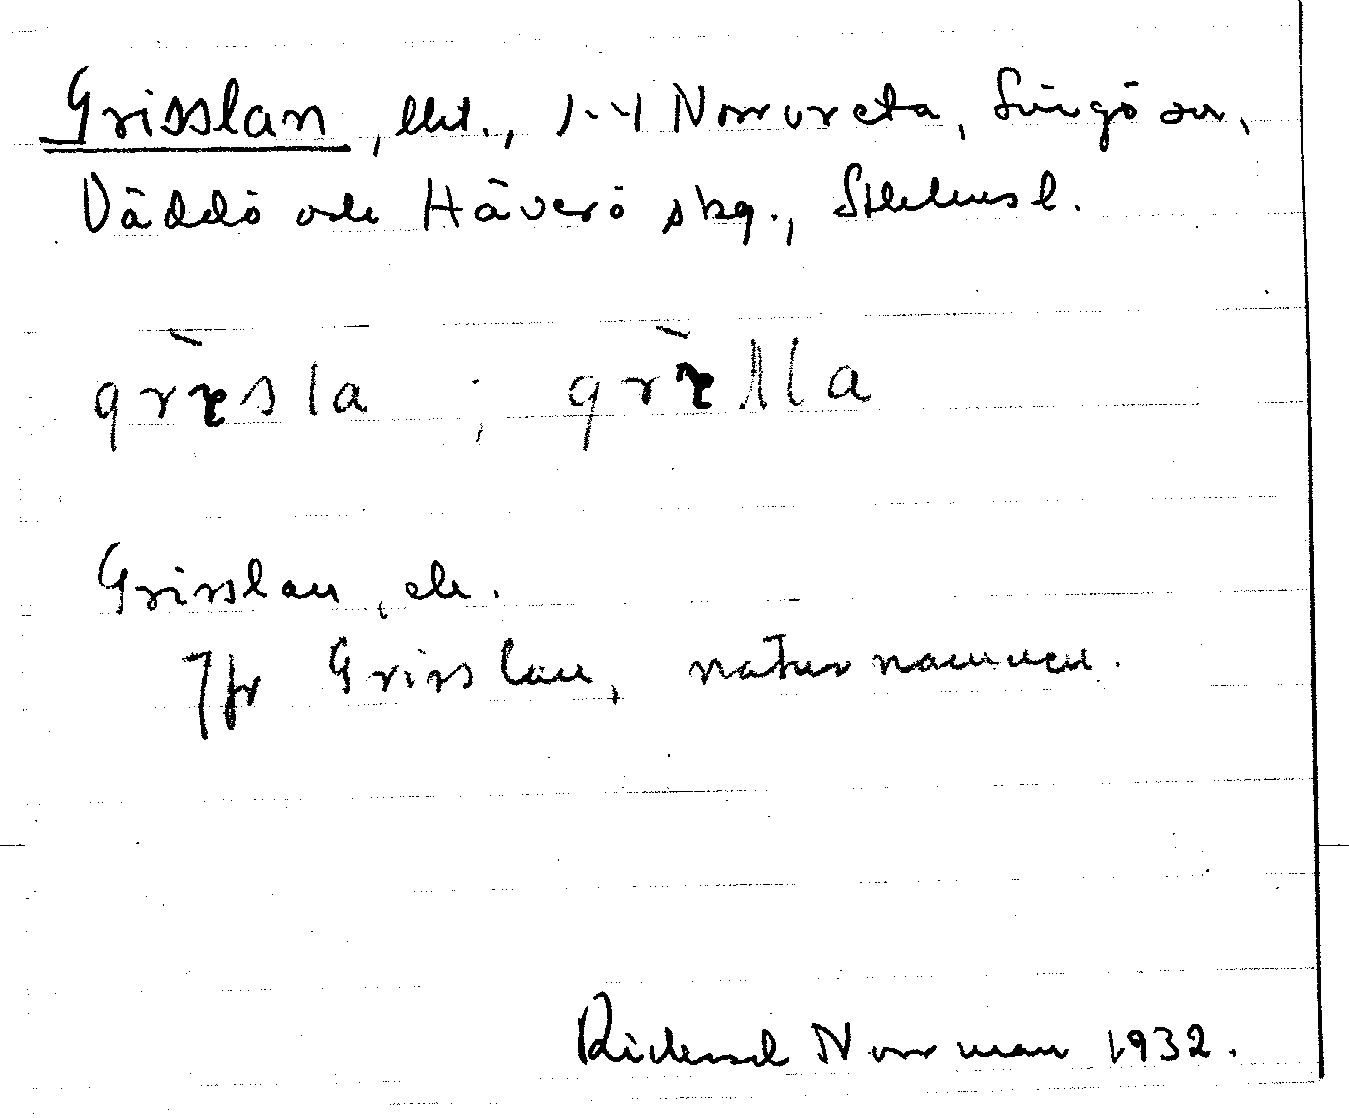 Grisslan, lht., 1-4 Norrvreta, Singö sn,
Väddö och Häverö skg., Sthlms l.
Grisslan, ek.
Jfr Grisslan, naturnamnen.
Rickard Norrman 1932.